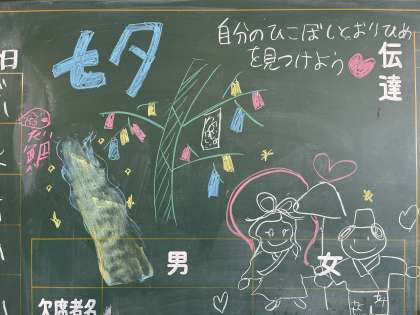 七夕
自分のひこぼしとおりひめ
を見つけよう
伝達
日
男
女
欠席者名